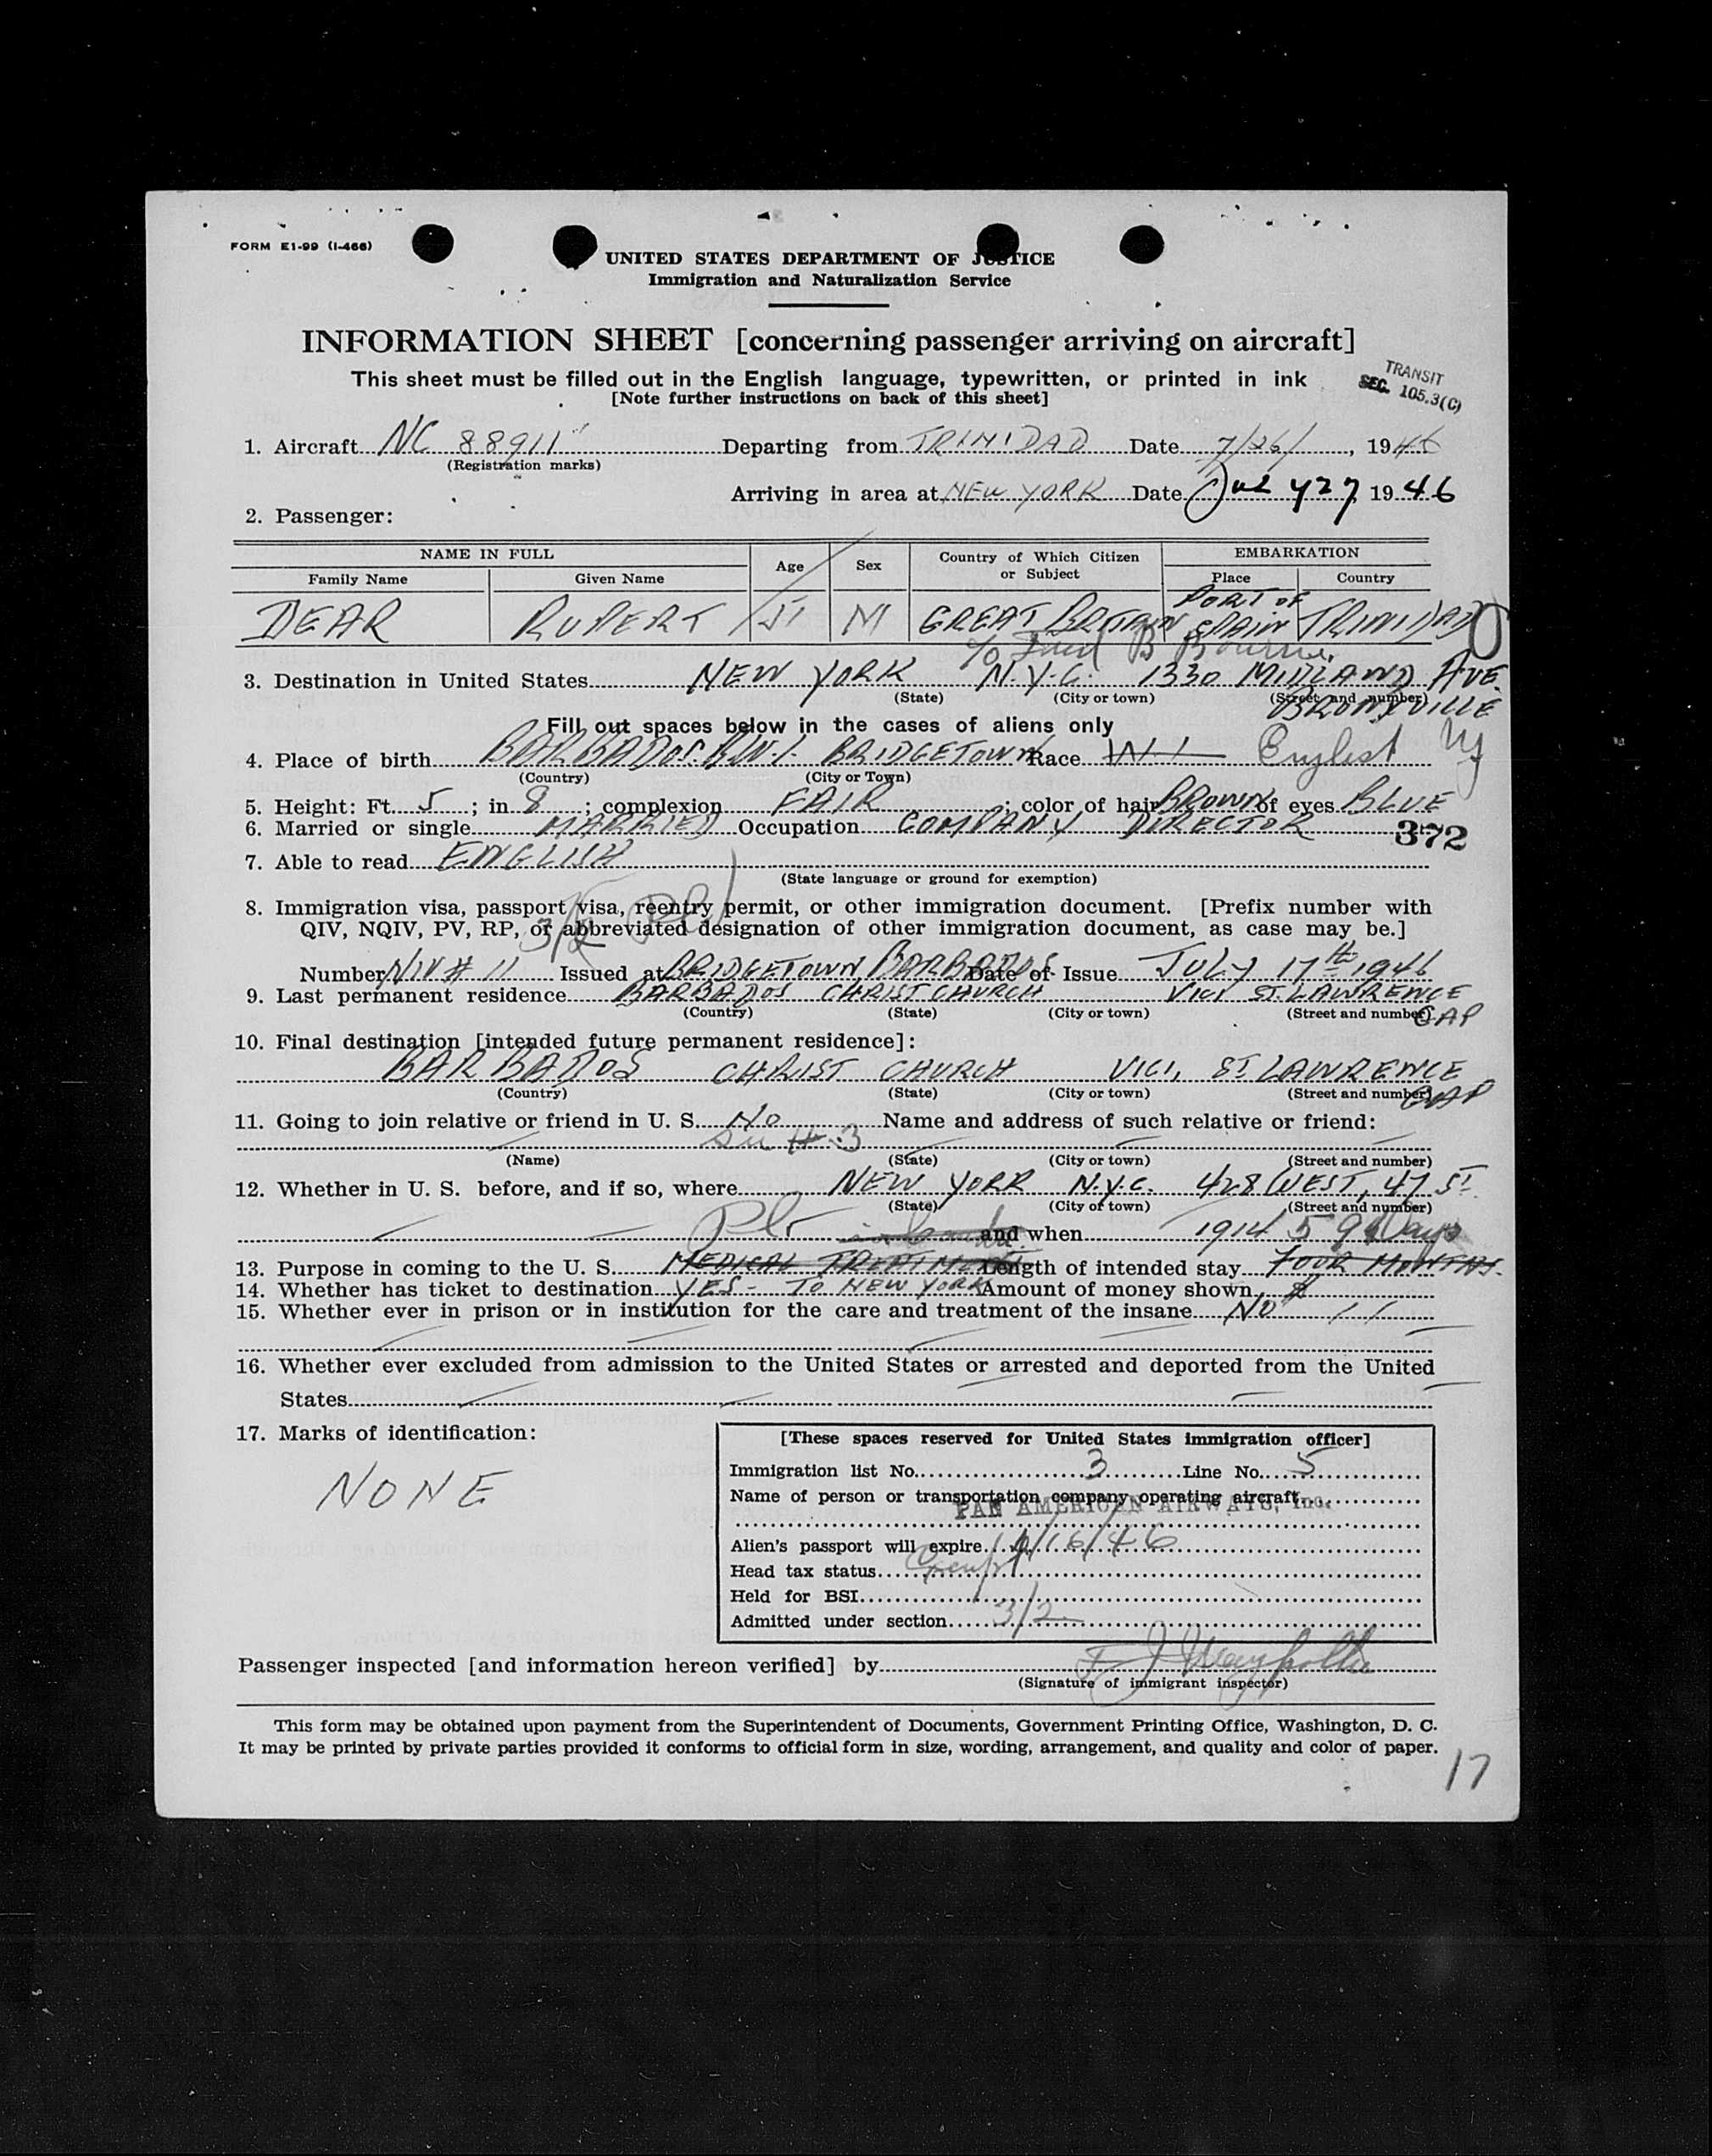 FORM E1-99 (I-466)
UNITED STATES DEPARTMENT OF JUSTICE
Immigration and Naturalization Service
INFORMATION SHEET [concerning passenger arriving on aircraft]
This sheet must be filled out in the English language, typewritten, or printed in ink
[Note further instructions on back of this sheet]
TRANSIT
SEC. 105.3(C)
1. Aircraft NC 88911 Departing from TRINIDAD Date 7/26/, 1946
(Registration marks)
Arriving in area at NEW YORK Date July 27 1946
2. Passenger:
NAME IN FULL Age Sex Country of Which Citizen or Subject EMBARKATION
Family Name Given Name Place Country
DEAR RUPERT 51 M GREAT BRTAIN PORT OF SPAIN TRINIDAD
c/o B Bourne
3. Destination in United States NEW YORK N.Y.C. 1330 MIDLAND AVE.
(State) (City or town) (Street and number)
BRONXVILLE
NY
Fill out spaces below in the cases of aliens only
4. Place of birth BARBADOS. B.W.I. BRIDGETOWN Race W I English
(Country) (City or Town)
5. Height: Ft. 5; in 8; complexion FAIR; color of hair BROWN of eyes BLUE
6. Married or single MARRIED Occupation COMPANY DIRECTOR
372
7. Able to read ENGLISH
(State language or ground for exemption)
8. Immigration visa, passport visa, reentry permit, or other immigration document. [Prefix number with
QIV, NQIV, PV, RP, or abbreviated designation of other immigration document, as case may be.]
3/2
Number NIV # 11 Issued at BRIDGETOWN BARBADOS Date of Issue JULY 17th 1946
9. Last permanent residence BARBADOS CHRIST CHURCH VICI ST. LAWRENCE
(Country) (State) (City or town) (Street and number) GAP
10. Final destination [intended future permanent residence]:
BARBADOS CHRIST CHURCH VICI, ST LAWRENCE
(Country) (State) (City or town) (Street and number) GAP
11. Going to join relative or friend in U. S. NO Name and address of such relative or friend:
# 3
(Name) (State) (City or town) (Street and number)
12. Whether in U. S. before, and if so, where NEW YORK N.Y.C. 428 WEST, 47 ST.
(State) (City or town) (Street and number)
and when 1914 59 Days
13. Purpose in coming to the U. S. MEDICAL TREATMENT Length of intended stay FOUR MONTHS.
14. Whether has ticket to destination YES - TO NEW YORK Amount of money shown $
15. Whether ever in prison or in institution for the care and treatment of the insane NO
16. Whether ever excluded from admission to the United States or arrested and deported from the United
States
17. Marks of identification:
NONE
[These spaces reserved for United States immigration officer]
Immigration list No. 3 Line No. 5
Name of person or transportation company operating aircraft
PAN AMERICAN AIRWAYS, Inc.
Alien's passport will expire /16/46
Head tax status Exempt
Held for BSI
Admitted under section 3/2
Passenger inspected [and information hereon verified] by
(Signature of immigrant inspector)
This form may be obtained upon payment from the Superintendent of Documents, Government Printing Office, Washington, D. C.
It may be printed by private parties provided it conforms to official form in size, wording, arrangement, and quality and color of paper.
17